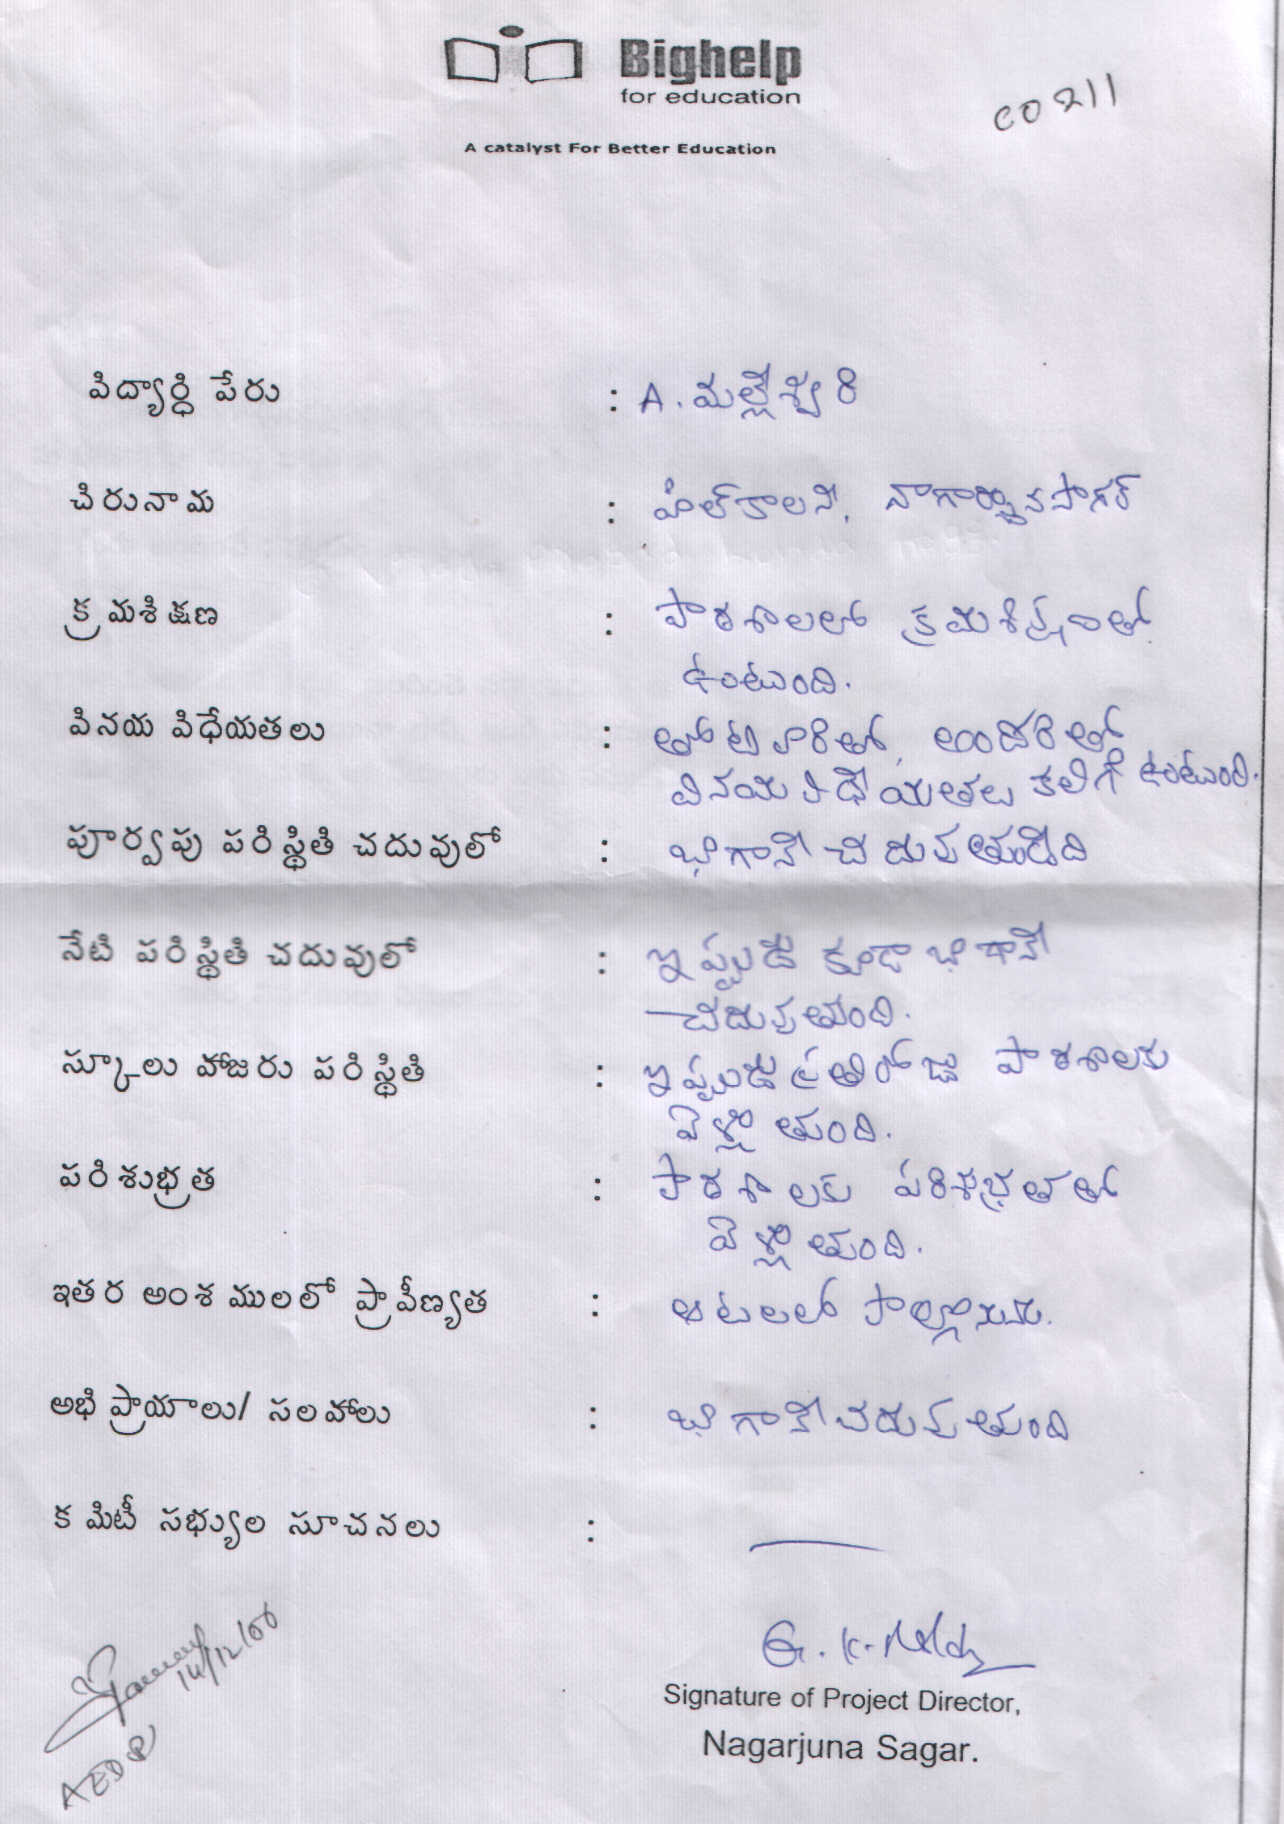 Bighelp
for education
A catalyst For Better Education
CO211
విద్యార్థి పేరు : A. మల్లేశ్వరి
చిరునామ : హిల్‌కాలని, నాగార్జునసాగర్
క్రమశిక్షణ : పాఠశాలలో క్రమశిక్షణతో
ఉంటుంది.
వినయ విధేయతలు : తోటివారితో, అందరితో
వినయవిధేయతలు కలిగి ఉంటుంది.
పూర్వపు పరిస్థితి చదువులో : బాగానే చదువుతుండేది
నేటి పరిస్థితి చదువులో : ఇప్పుడు కూడా బాగానే
చదువుతుంది.
స్కూలు హాజరు పరిస్థితి : ఇప్పుడు ప్రతిరోజు పాఠశాలకు
వెళ్లుతుంది.
పరిశుభ్రత : పాఠశాలకు పరిశుభ్రతతో
వెళ్లుతుంది.
ఇతర అంశములలో ప్రావీణ్యత : ఆటలలో పాల్గొనును.
అభిప్రాయాలు/ సలహాలు : బాగానే చదువుతుంది
కమిటీ సభ్యుల సూచనలు :
G. K. Reddy
14/12/06
Signature of Project Director,
Nagarjuna Sagar.